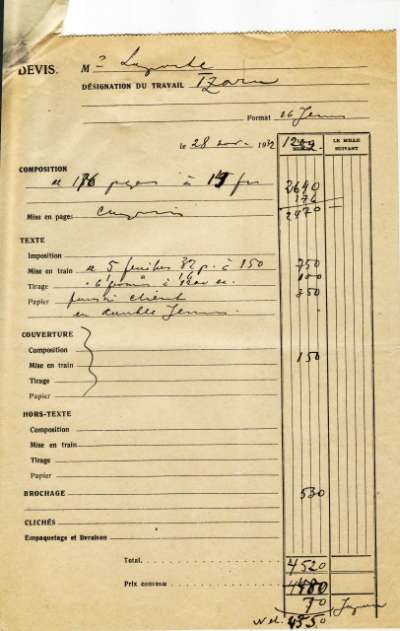 DEVIS. Mr Laporte
DÉSIGNATION DU TRAVAIL Izarn
Format 16 Jésus
le 28 nov. 1932
1200
LE MILLE SUIVANT
COMPOSITION
de 176 pages à 15 frs 2640
176
Mise en pages 2470
TEXTE
Imposition
Mise en train de 5 feuilles 32 p. à 150 750
100
Tirage 350
Papier fourni client
en double Jésus
COUVERTURE
Composition 150
Mise en train
Tirage
Papier
HORS-TEXTE
Composition
Mise en train
Tirage
Papier
BROCHAGE 530
CLICHÉS
Empaquetage et livraison
Total. 4520
Prix convenu 4480
70
Net 4550